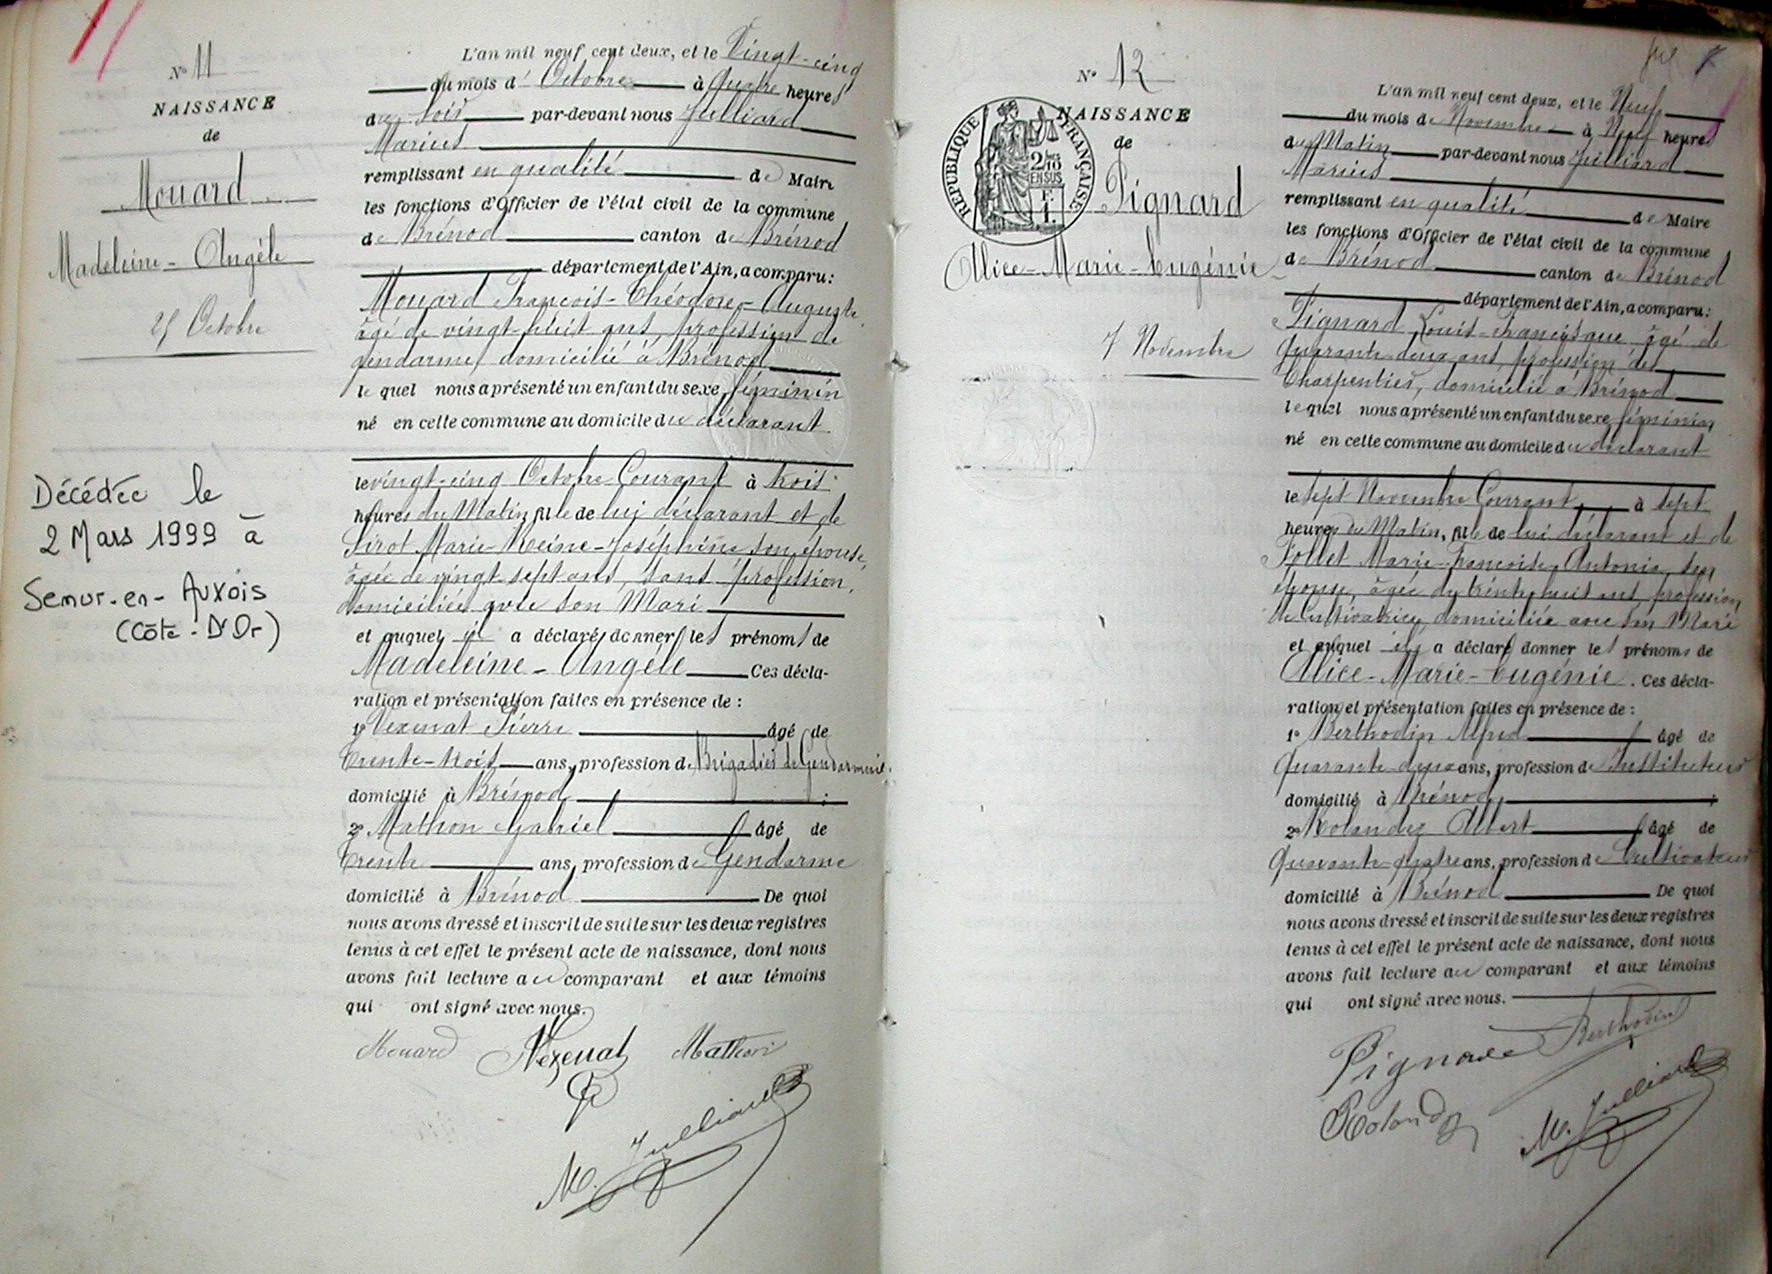 N° 11
NAISSANCE
de
Mouard
Madeleine - Angèle
25 Octobre
Décédée le
2 Mars 1999 à
Semur-en-Auxois
(Côte-D'Or)
L'an mil neuf cent deux, et le Vingt-cinq
du mois d' Octobre à quatre heures
du soir par-devant nous Julliard
Marius
remplissant en qualité de Maire
les fonctions d'Officier de l'état civil de la commune
de Brénod canton de Brénod
département de l'Ain, a comparu:
Mouard François-Théodore-Auguste
âgé de vingt-huit ans, profession de
gendarme, domicilié à Brénod
le quel nous a présenté un enfant du sexe féminin
né en cette commune au domicile du déclarant
le vingt-cinq Octobre Courant à trois
heures du Matin, fille de lui déclarant et de
Pirot Marie-Reine-Joséphine son épouse,
âgée de vingt-sept ans, sans profession,
domiciliée avec son Mari
et auquel il a déclaré donner les prénoms de
Madeleine - Angèle Ces décla-
ration et présentation faites en présence de :
1° Vexenat Pierre âgé de
Trente-trois ans, profession de Brigadier de Gendarmerie.
domicilié à Brénod ;
2° Mathon Gabriel âgé de
Trente ans, profession de Gendarme
domicilié à Brénod De quoi
nous avons dressé et inscrit de suite sur les deux registres
tenus à cet effet le présent acte de naissance, dont nous
avons fait lecture au comparant et aux témoins
qui ont signé avec nous.
Mouard Vexenat Mathon
M. Julliard
N° 12
NAISSANCE
de
RÉPUBLIQUE FRANÇAISE
2/10
EN SUS
Pignard
Alice - Marie - Eugénie
7 Novembre
L'an mil neuf cent deux, et le Neuf
du mois de Novembre à Neuf heures
du Matin par-devant nous Julliard
Marius
remplissant en qualité de Maire
les fonctions d'Officier de l'état civil de la commune
de Brénod canton de Brénod
département de l'Ain, a comparu:
Pignard Louis-Francisque âgé de
Quarante-deux ans, profession de
Charpentier, domicilié à Brénod
le quel nous a présenté un enfant du sexe féminin
né en cette commune au domicile du déclarant
le sept Novembre Courant, à sept
heures du Matin, fille de lui déclarant et de
Pollet Marie-Françoise, Antonia, son
épouse, âgée de trente huit ans, profession
de Cultivatrice, domiciliée avec son Mari
et auquel il a déclaré donner les prénoms de
Alice - Marie - Eugénie. Ces décla-
ration et présentation faites en présence de :
1° Berthodin Alfred âgé de
Quarante deux ans, profession de Instituteur
domicilié à Brénod ;
2° Rolandez Albert âgé de
Quarante-quatre ans, profession de Cultivateur
domicilié à Brénod De quoi
nous avons dressé et inscrit de suite sur les deux registres
tenus à cet effet le présent acte de naissance, dont nous
avons fait lecture au comparant et aux témoins
qui ont signé avec nous.
Pignard Berthodin
Rolandez M. Julliard